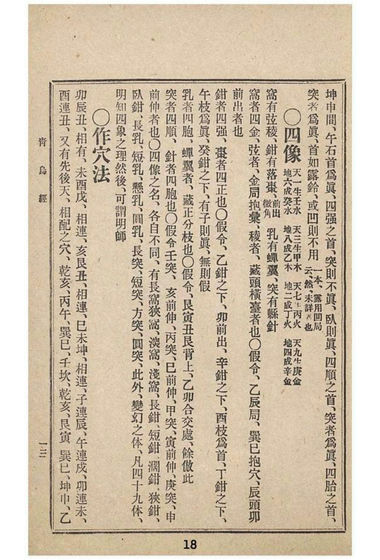 坤申間、午石首爲眞、四强之首、突則不眞、臥則眞、四順之首、突者爲眞、四胎之首、
突者爲眞、首如露鈴、或凹則不用
一本、露用間局
云、然、未詳也
〇四像
天一生壬水
地六成癸水
天三生甲木
地八成乙木
天七生丙火
地二成丁火
天九生庚金
地四成辛金
窩有弦稜、鉗有落棗、
前出
微角
乳有蟬翼、突有懸針
窩者四金、弦者、金局抱彙、稜者、藏頭橫臺者也〇假令、乙辰局、巽巳抱穴、辰頭卯
前出者也
鉗者四强、棗者四正也〇假令、乙鉗之下、卯前出、辛鉗之下、酉枝爲首、丁鉗之下、
午枝爲眞、癸鉗之下、有子則眞、無則假
乳者四胞、蟬翼者、藏正分枝也〇假令、艮寅丑艮背上、乙卯合交處、餘倣此
突者四順、針者四胞也〇假令、壬突、亥前伸、丙突、巳前伸、甲突、寅前伸、庚突、申
前伸者也〇四像之名、各自不同、有長窩狹窩、深窩、淺窩、長鉗、短鉗、濶鉗、狹鉗、
臥鉗、長乳、短乳、懸乳、圓乳、長突、短突、方突、圓突、此外、變幻之体、凡四十九体、
明知四象之理然後、可謂明師
〇作穴法
卯辰丑、相有、未酉戊、相連、亥艮丑、相連、巳未坤、相連、子連辰、午連戌、卯連未、
酉連丑、又有先後天、相配之穴、乾亥、丙午、巽巳、壬坎、乾亥、艮寅、巽巳、坤申、乙
靑烏經
一三
18